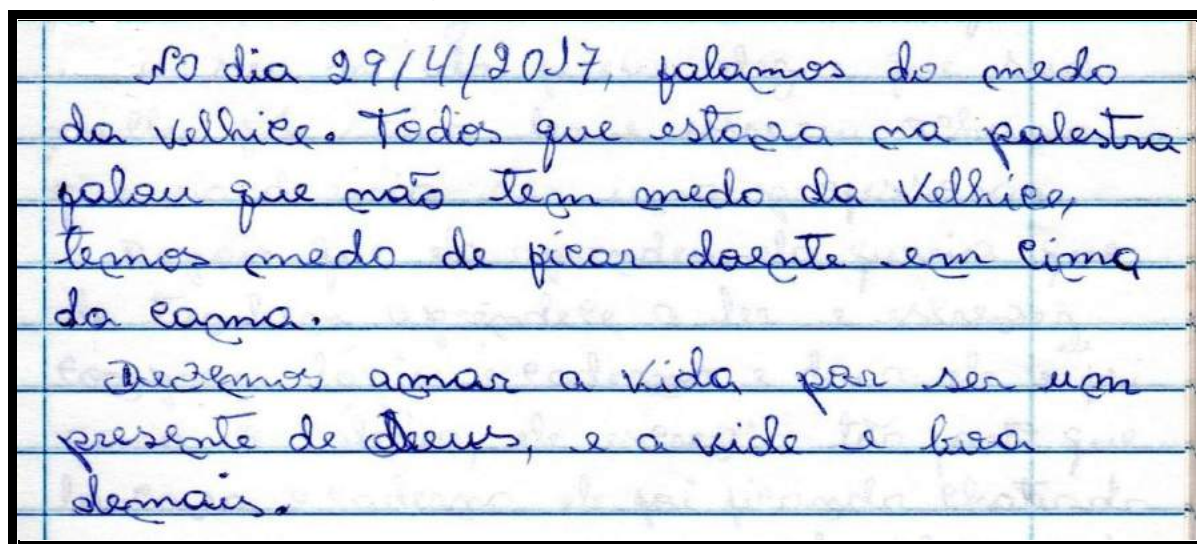 No dia 29/4/2017, falamos do medo
da velhice. Todos que estava na palestra
falau que não tem medo da velhice,
temos medo de ficar doente em cima
da cama.
Devemos amar a vida por ser um
presente de Deus, e a vide e boa
demais.